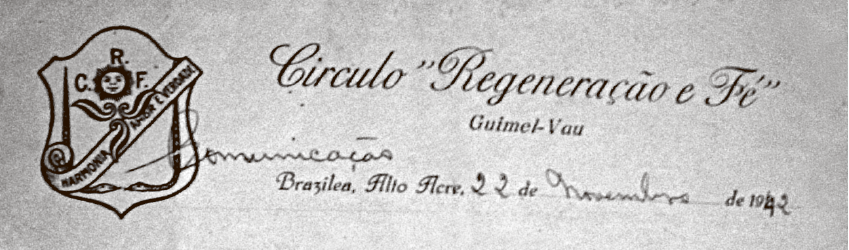 C. R. F.
HARMONIA AMOR E VERDADE
Circulo "Regeneração e Fé"
Guimel-Vau
Comunicação
Brazilea, Alto Acre, 22 de Novembro de 1942